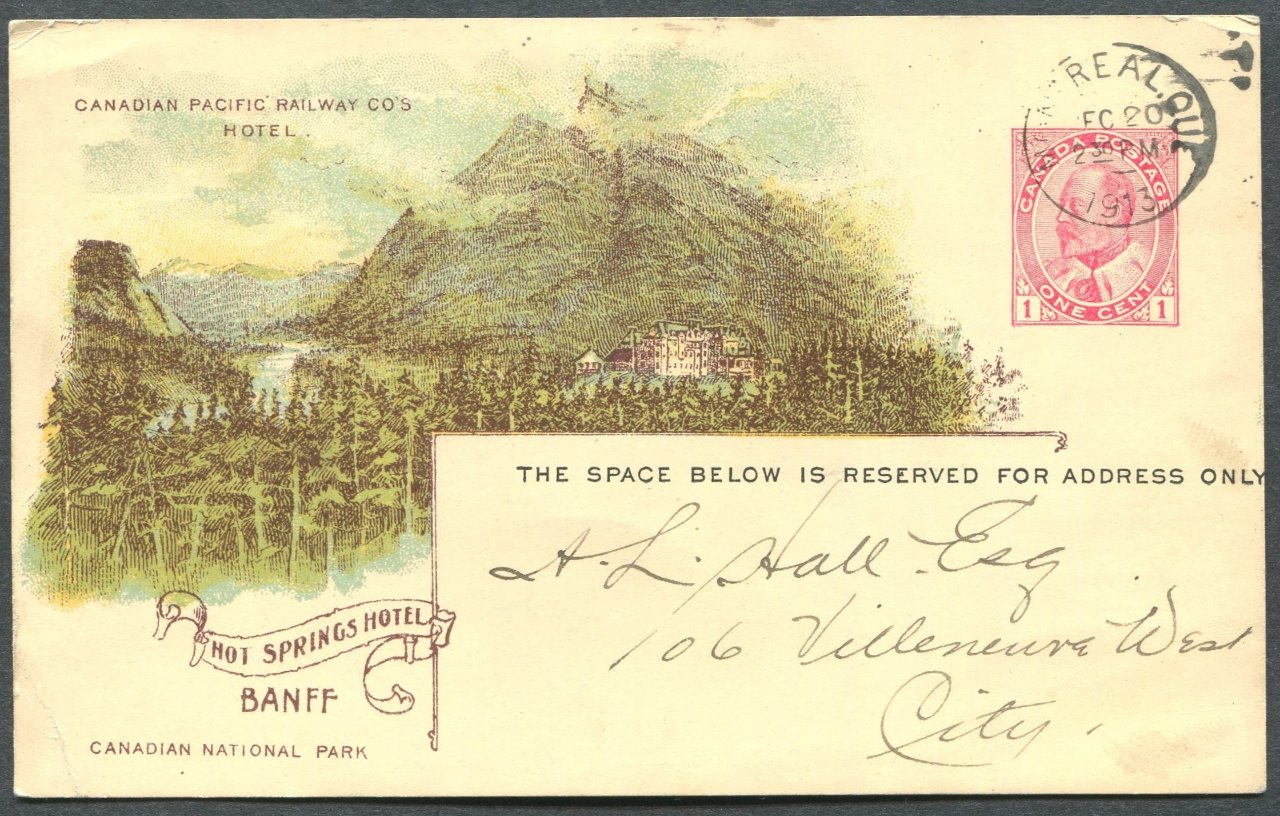 CANADIAN PACIFIC RAILWAY CO'S
HOTEL.
REAL. QUE
20
2 30 PM
1913
CANADA POSTAGE
ONE CENT
1 1
THE SPACE BELOW IS RESERVED FOR ADDRESS ONLY
A. L. Hall Esq
106 Villeneuve West
City.
HOT SPRINGS HOTEL
BANFF
CANADIAN NATIONAL PARK